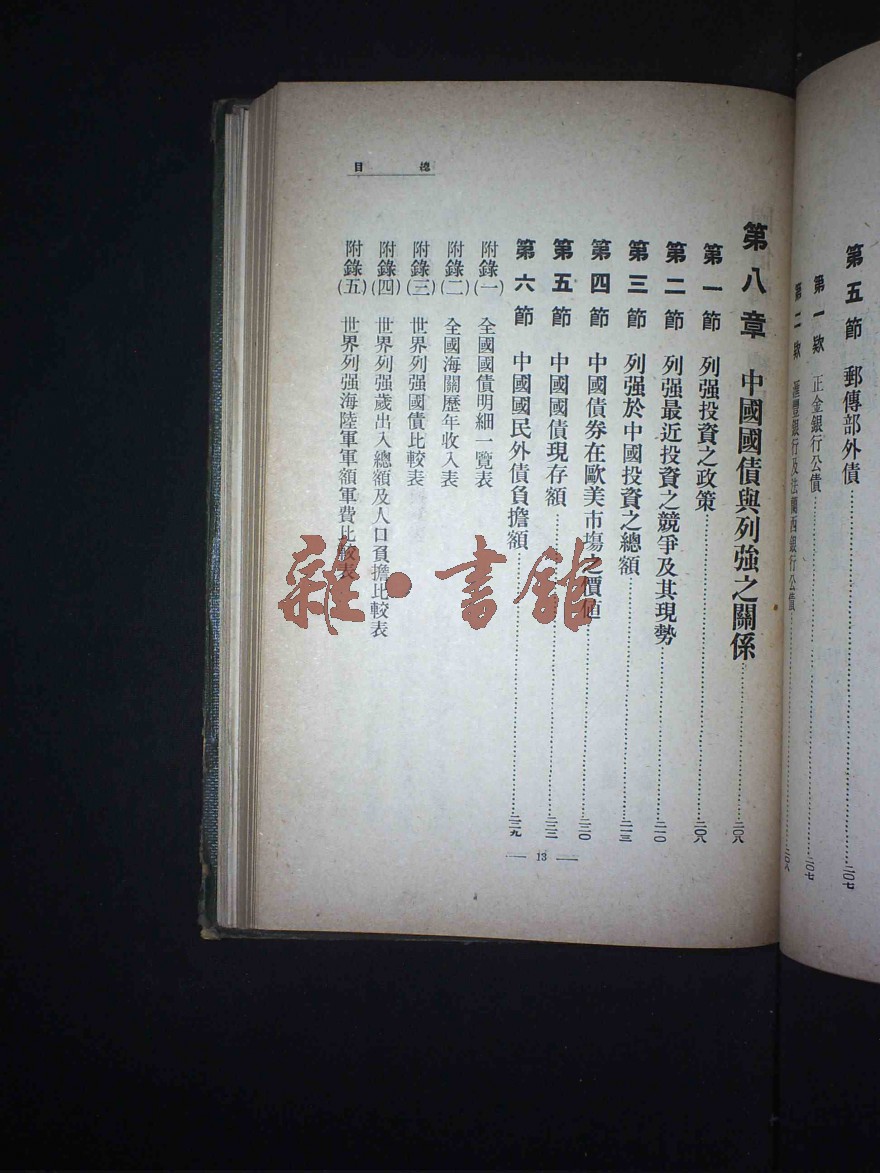 第五節　郵傳部外債……二〇七
第一欵　正金銀行公債……二〇七
第二欵　滙豐銀行及法蘭西銀行公債……二〇八
總目
第八章　中國國債與列強之關係……二〇八
第一節　列强投資之政策……二〇八
第二節　列强最近投資之競爭及其現勢……二一〇
第三節　列强於中國投資之總額……二一三
第四節　中國債券在歐美市塲之價値……二二〇
第五節　中國國債現存額……二二二
第六節　中國國民外債負擔額……二二九
附錄(一)　全國國債明細一覽表
附錄(二)　全國海關歷年收入表
附錄(三)　世界列强國債比較表
附錄(四)　世界列强歲出入總額及人口負擔比較表
附錄(五)　世界列强海陸軍軍額軍費比較表
— 13 —
雜·書館